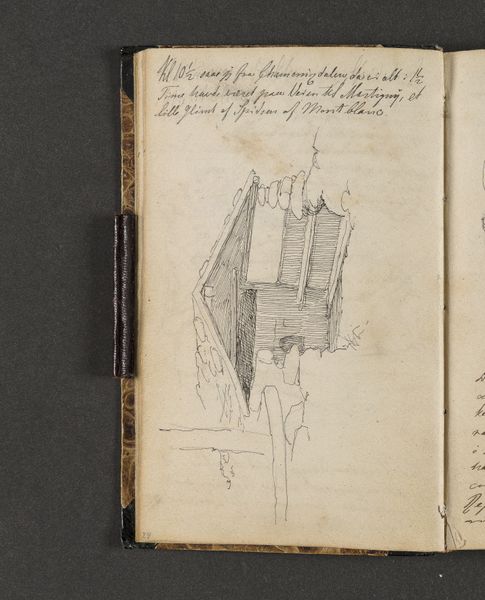 Kl 10½ saae vi fra Chamounydalen, da vi alt : 1½
Time havde været paa Veien til Martigny, et
lille Glimt af Spidsen af Montblanc